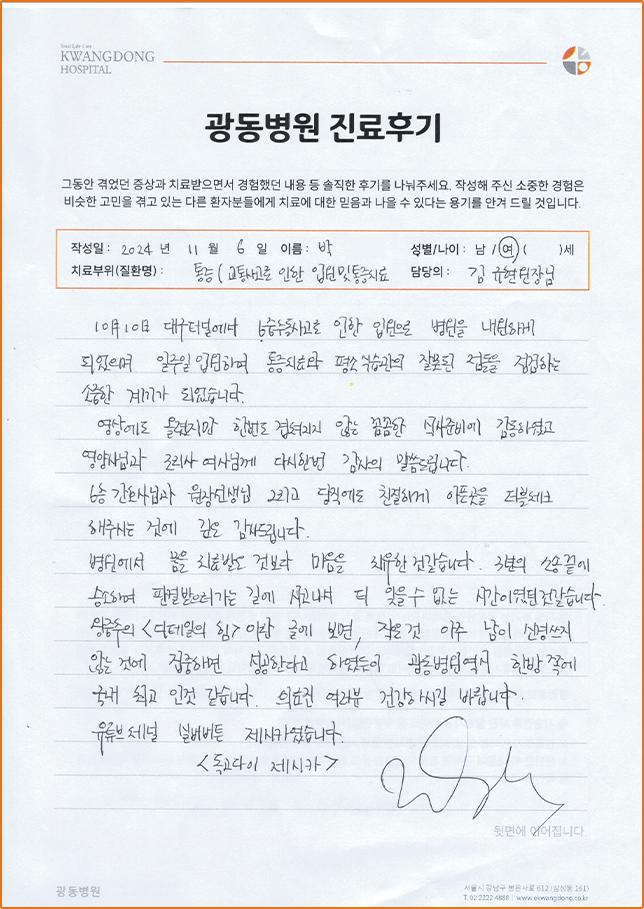 Total Life Care
KWANGDONG
HOSPITAL
광동병원 진료후기
그동안 겪었던 증상과 치료받으면서 경험했던 내용 등 솔직한 후기를 나눠주세요. 작성해 주신 소중한 경험은
비슷한 고민을 겪고 있는 다른 환자분들에게 치료에 대한 믿음과 나을 수 있다는 용기를 안겨 드릴 것입니다.
작성일 : 2024 년 11 월 6 일 이름 : 박 성별/나이 : 남 / 여 ( )세
치료부위(질환명) : 통증 ( 교통사고로 인한 입원및통증치료 담당의 : 김규현원장님
10月10日 대구터널에나 6중추돌사고로 인한 입원으로 병원을 내원하게
되었으며 일주일 입원하며 통증치료와 평소 습관의 잘못된 점들을 점검하는
소중한 계기가 되었습니다.
영상에도 올렸지만 한번도 겹쳐지지 않는 꼼꼼한 식사준비에 감동하였고
영양사님과 조리사 여사님께 다시한번 감사의 말씀드립니다.
6층 간호사님과 원장선생님 그리고 당직에도 친절하게 아픈곳을 더블체크
해주시는 것에 깊은 감사드립니다.
병원에서 몸을 치료받은 것보다 마음을 치유한 것같습니다. 3년의 소송 끝에
승소하며 판결받으러가는 길에 사고나서 더 잊을수 없는 시간이였던것같습니다.
왕중추의 <디테일의 힘> 이란 글에 보면, 작은것 아주 남이 신경쓰지
않는것에 집중하면 성공한다고 하였듯이 광동병원역시 한방쪽에
국내 최고 인것 같습니다. 의료진 여러분 건강하시길 바랍니다.
유튜브채널 실버버튼 제시카였습니다.
<독고다이 제시카>
뒷면에 이어집니다
광동병원
서울시 강남구 봉은사로 612 (삼성동 161)
T. 02 2222 4888 | www.ekwangdong.co.kr